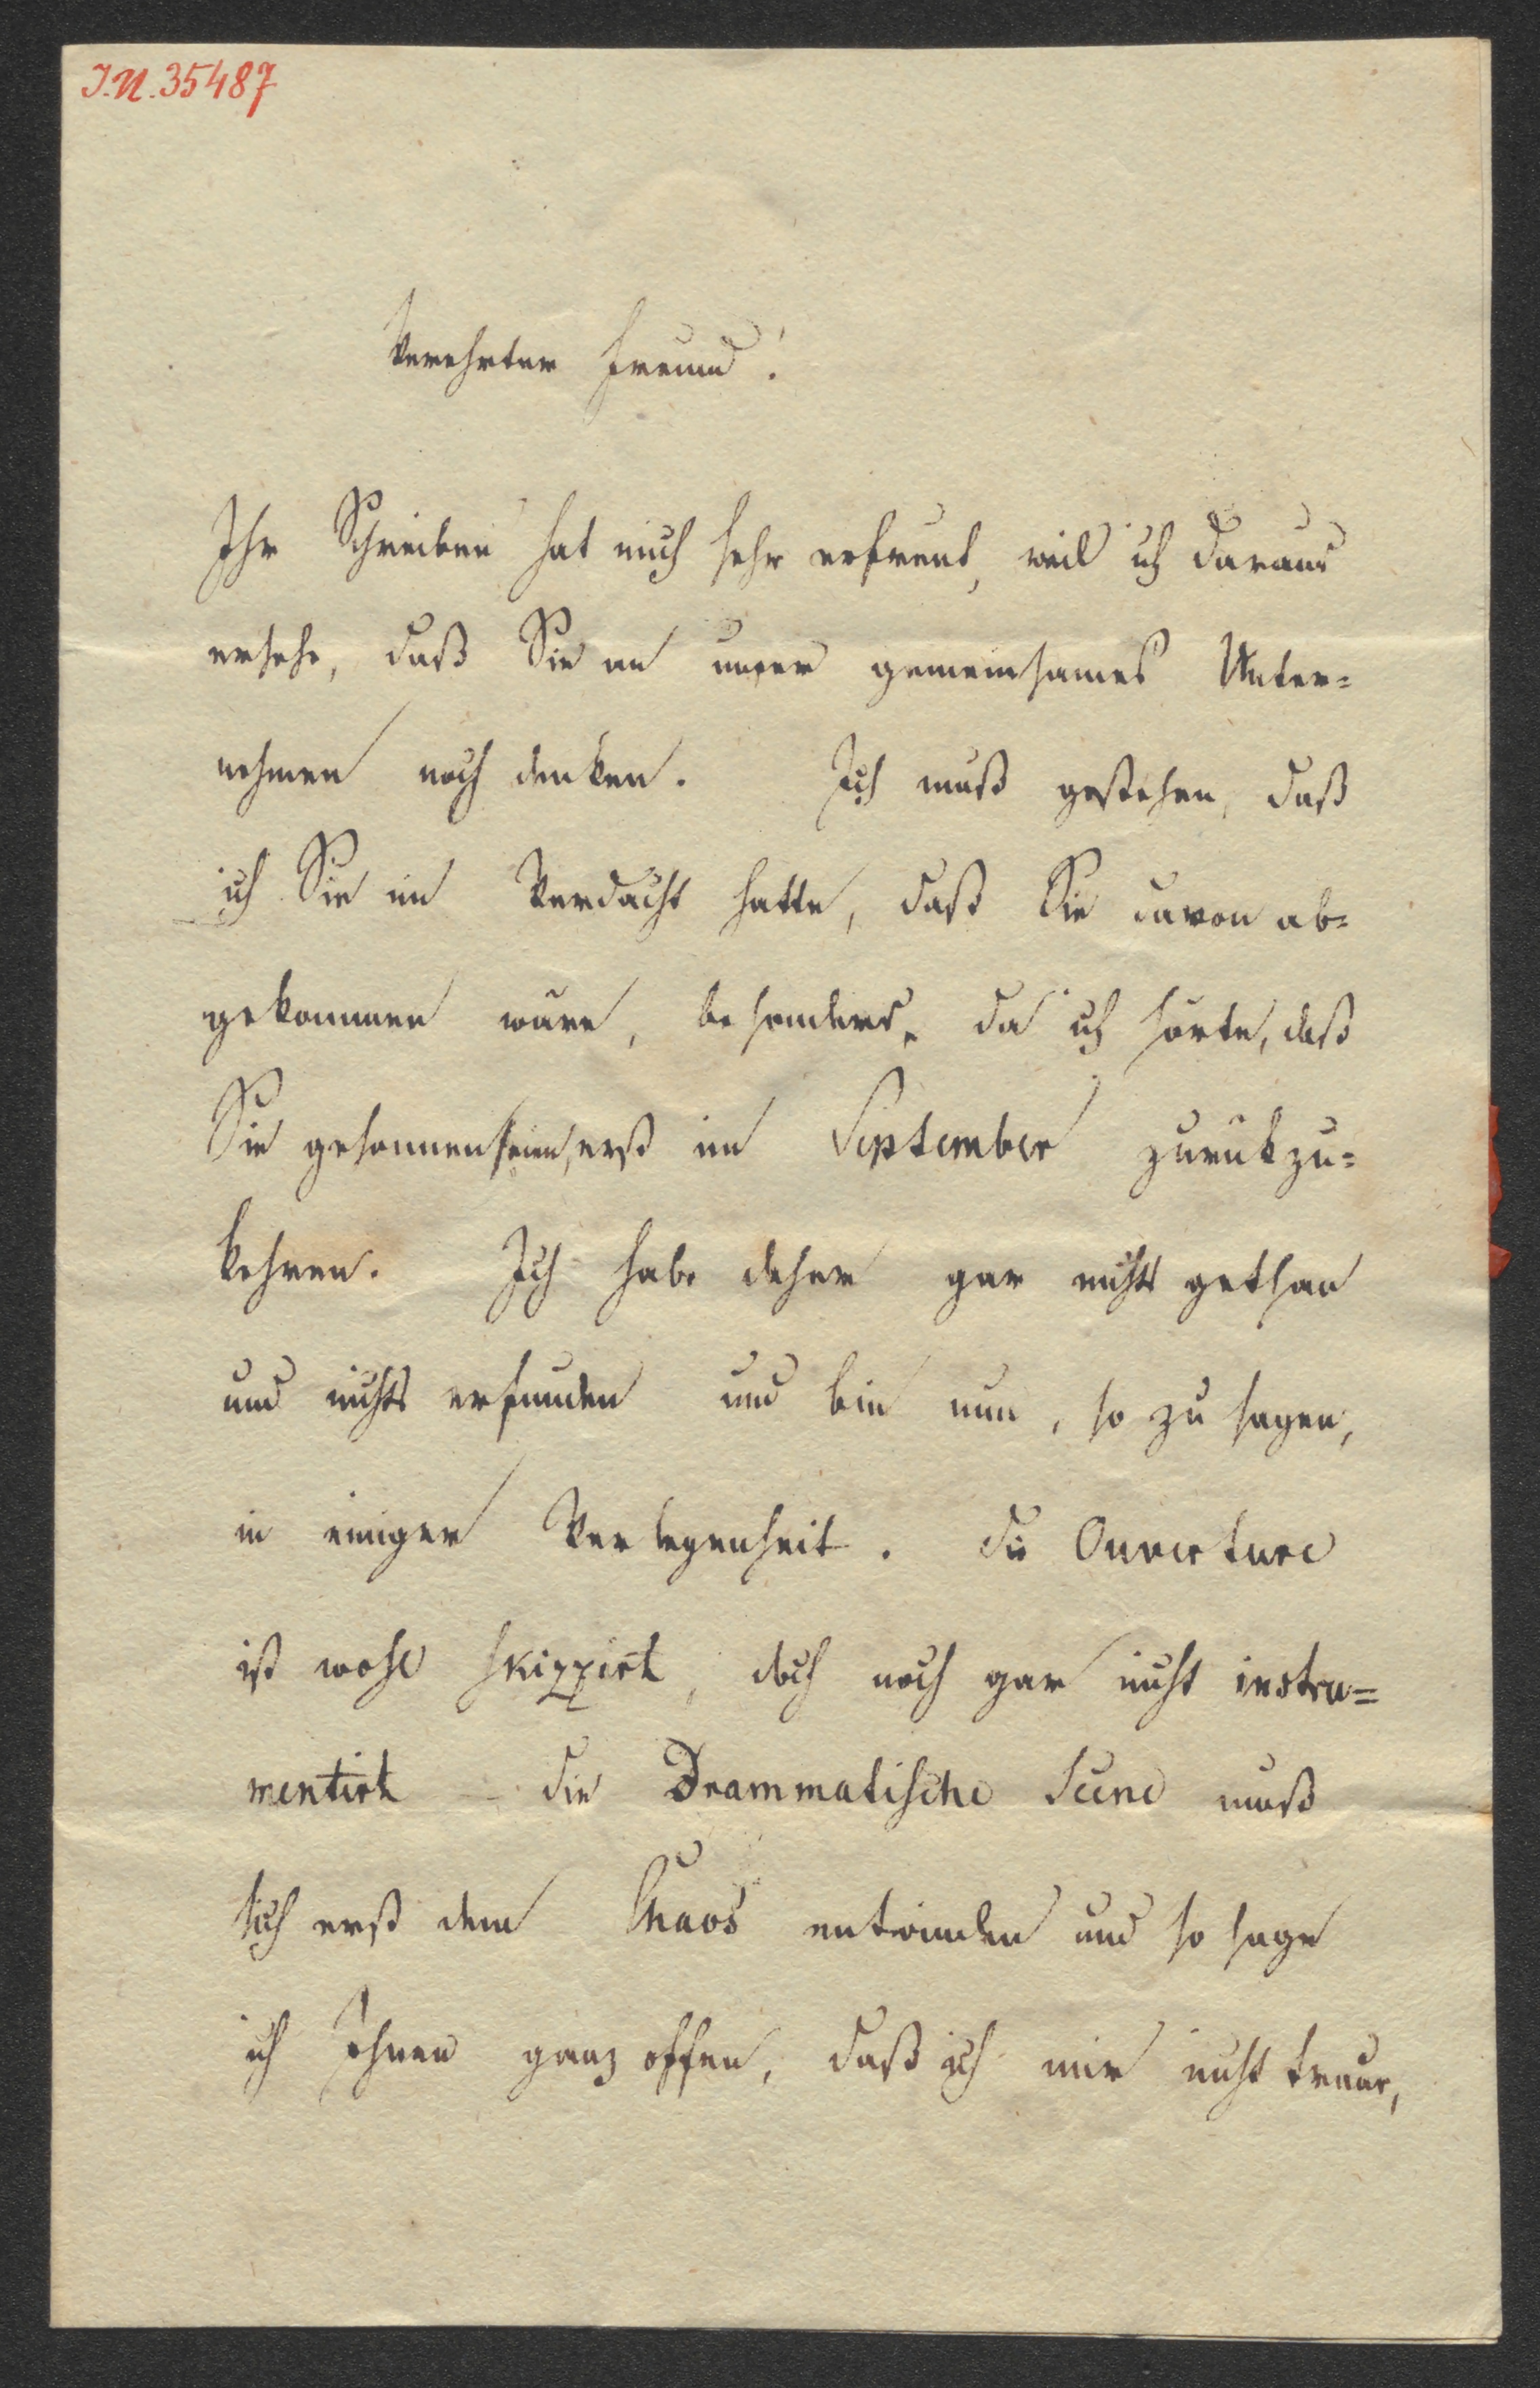 I.N. 35487
Verehrter Freund!
Ihr Schreiben hat mich sehr erfreut, weil ich daraus
ersehe, daß Sie an unser gemeinsames Unter=
nehmen noch denken. Ich muß gestehen, daß
ich Sie im Verdacht hatte, daß Sie davon ab=
gekommen wären, besonders, da ich hörte, daß
Sie gesonnen seien, erst im September zurükzu=
kehren. Ich habe daher gar nichts gethan
und nichts erfunden und bin nun, so zu sagen,
in einiger Verlegenheit. Die Ouverture
ist wohl skizzirt, doch noch gar nicht instru=
mentirt – die Drammatische Scene muß
sich erst dem Chaos entwinden und so sage
ich Ihnen ganz offen, daß ich mir nicht traue,